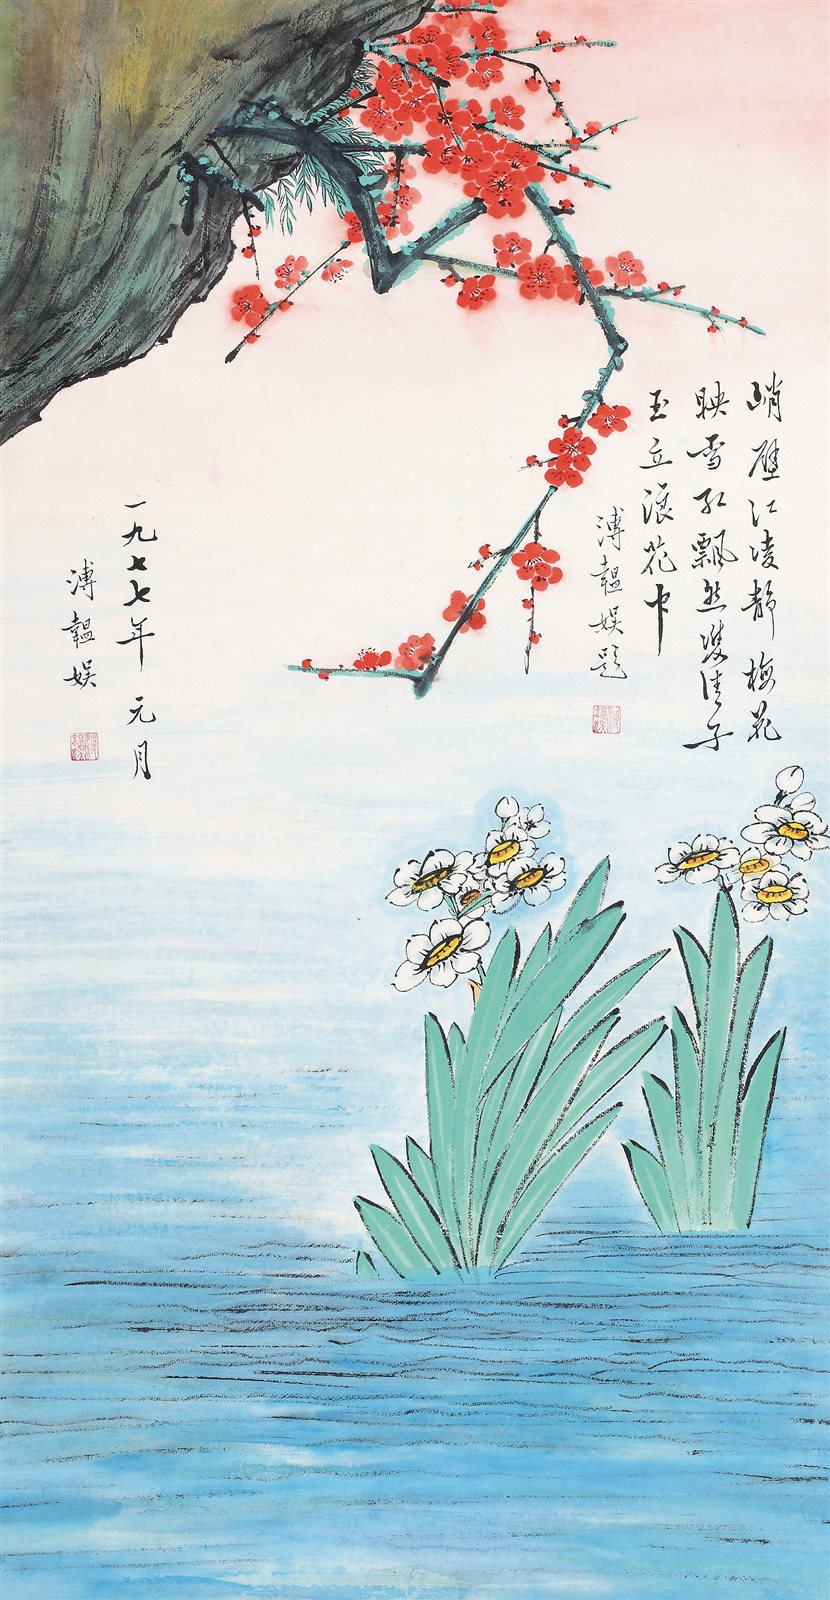 峭壁江凌静梅花
映雪红飘然双佳子
玉立浪花中
溥韫娱题
一九七七年元月
溥韫娱